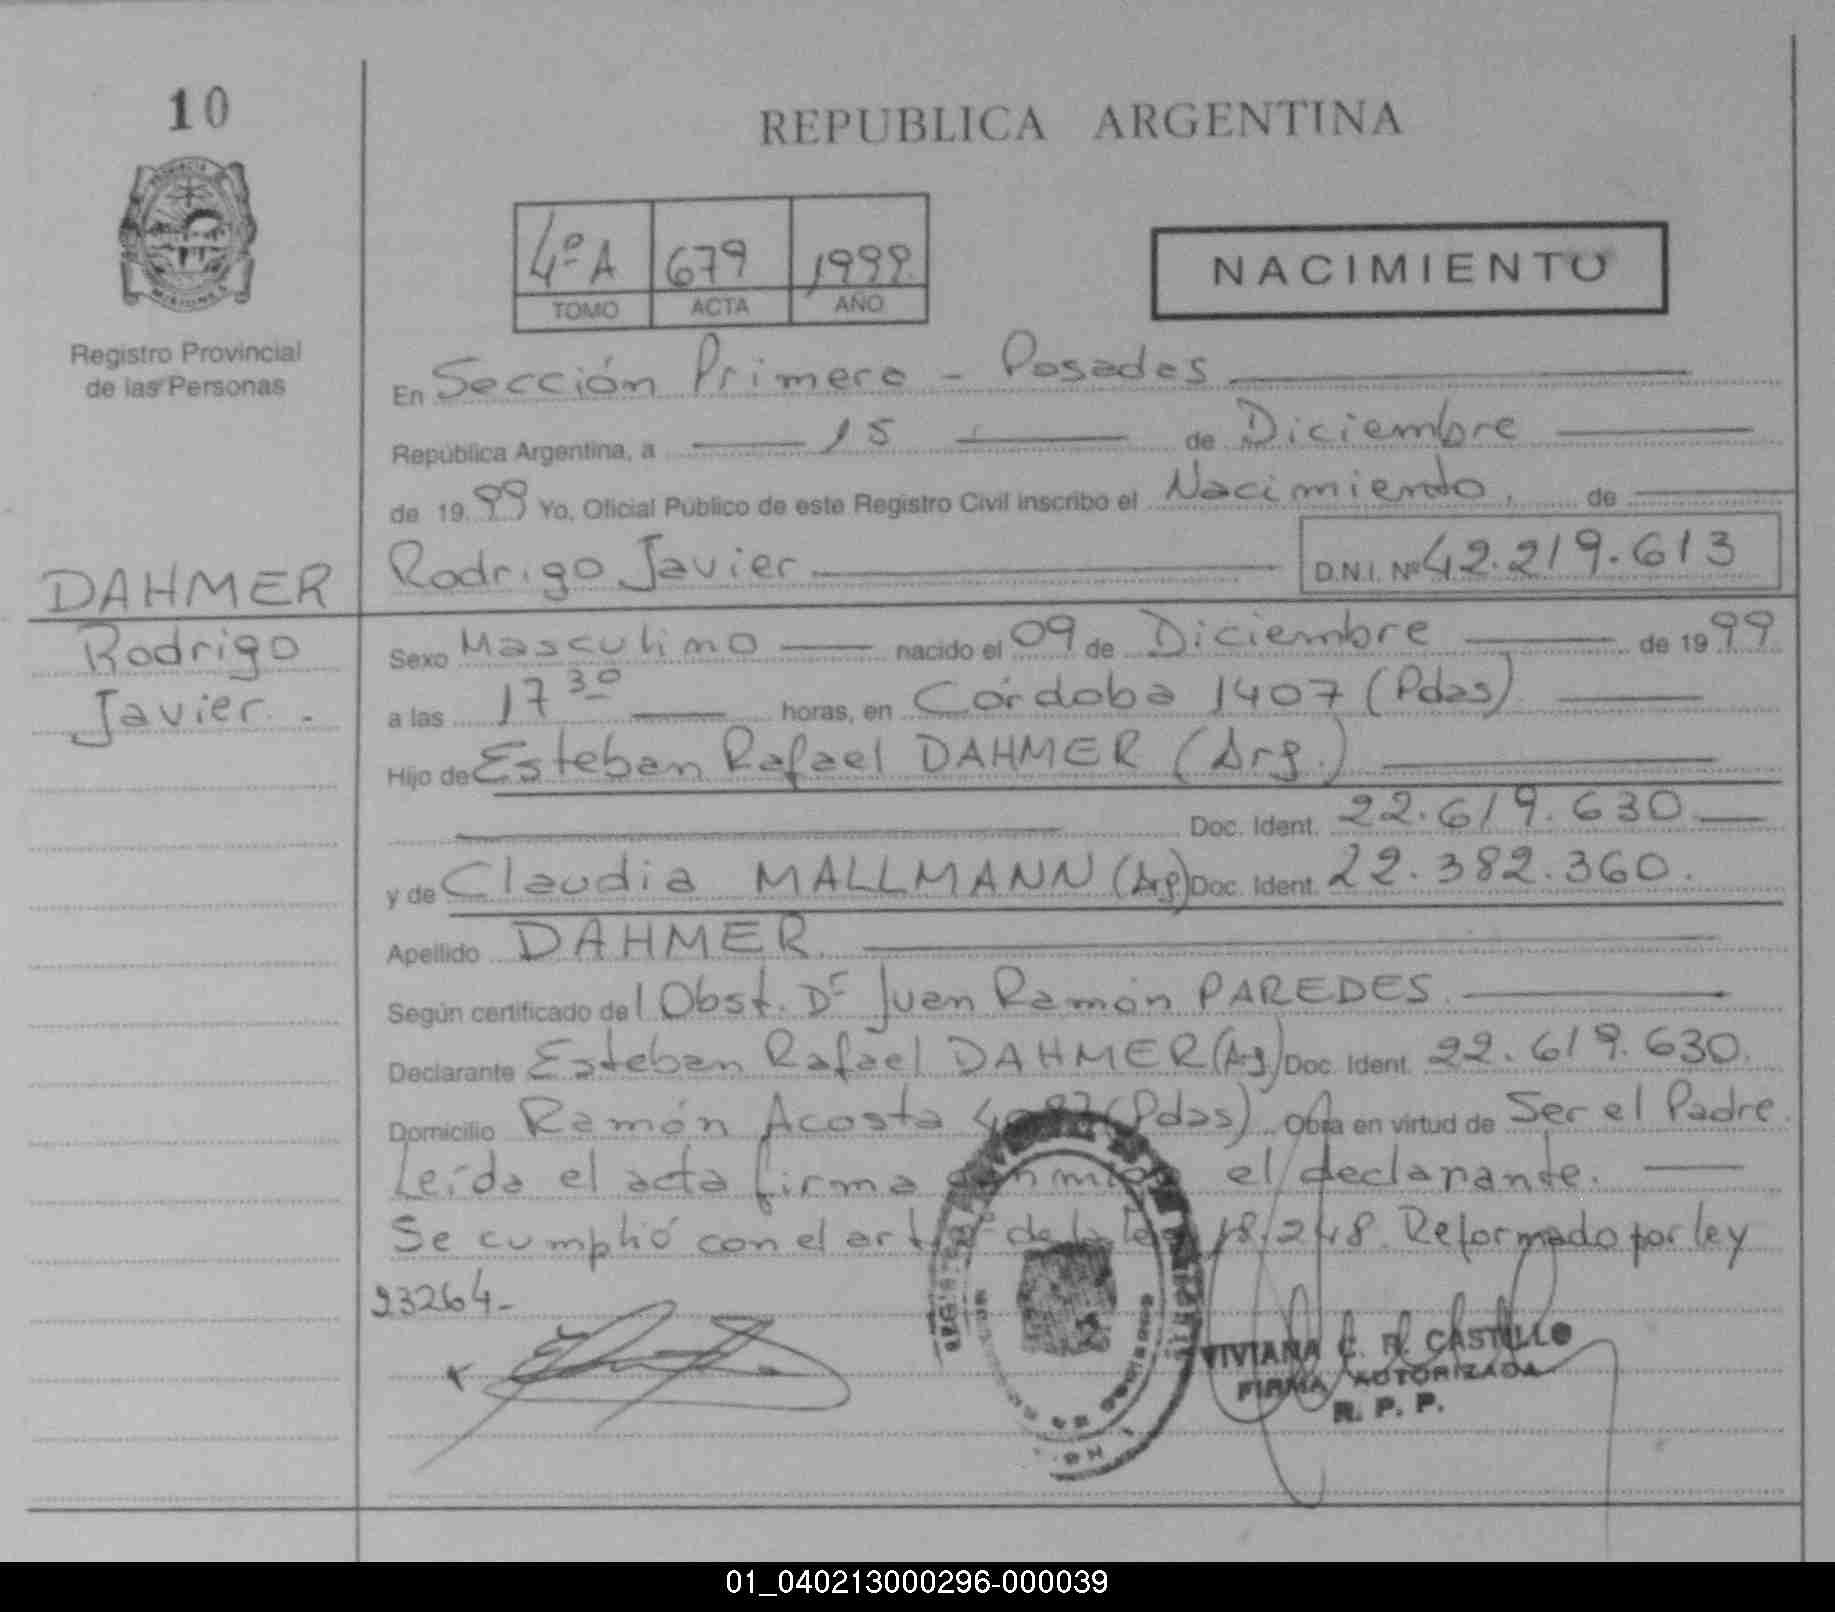 10
REPUBLICA ARGENTINA
4º A 679 1999
TOMO ACTA AÑO
NACIMIENTO
Registro Provincial
de las Personas
En Sección Primera - Posadas
República Argentina, a 15 de Diciembre
de 1999 Yo, Oficial Público de este Registro Civil inscribo el Nacimiento, de
DAHMER
Rodrigo Javier D.N.I. Nº 42.219.613
Rodrigo
Javier.
Sexo Masculino nacido el 09 de Diciembre de 1999
a las 17 30 horas, en Córdoba 1407 (Pdas)
Hijo de Esteban Rafael DAHMER (Arg.)
Doc. Ident. 22.619.630
y de Claudia MALLMANN (Arg) Doc. Ident. 22.382.360.
Apellido DAHMER
Según certificado del Obst. Dr Juan Ramón PAREDES.
Declarante Esteban Rafael DAHMER (Arg) Doc. Ident. 22.619.630.
Domicilio Ramón Acosta (Pdas) Obra en virtud de Ser el Padre.
Leída el acta firma el declarante.
Se cumplió con el art de la Ley 18.248. Reformado por ley
23264-
VIVIANA C. R. CASTILLO
FIRMA AUTORIZADA
R. P. P.
01_040213000296-000039